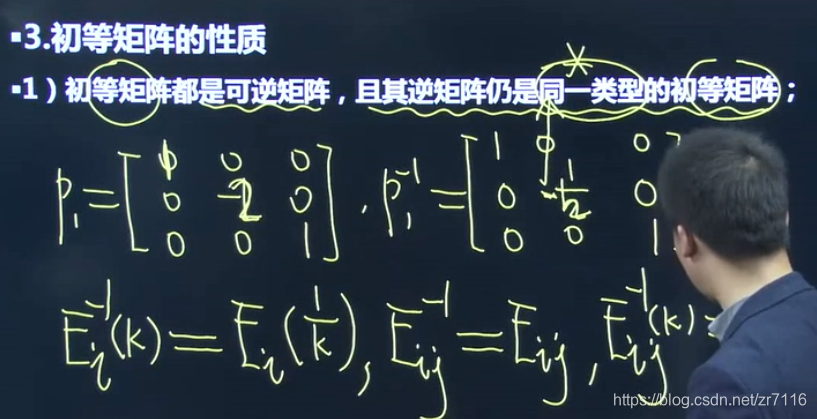 ▪3.初等矩阵的性质
▪1）初等矩阵都是可逆矩阵，且其逆矩阵仍是同一类型的初等矩阵；
P₁ = [1 0 0; 0 -2 0; 0 0 1], P₁⁻¹ = [1 0 0; 0 -1/2 0; 0 0 1
Eᵢ⁻¹(k) = Eᵢ(1/k), Eᵢⱼ⁻¹ = Eᵢⱼ, Eᵢⱼ⁻¹(k) =
https://blog.csdn.net/zr7116